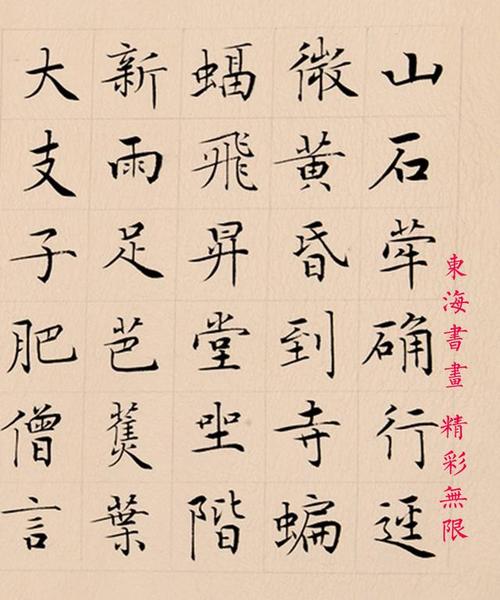 山石荦确行逕
微黄昏到寺蝙
蝠飛昇堂坐階
新雨足芭蕉葉
大支子肥僧言
東海書畫 精彩無限